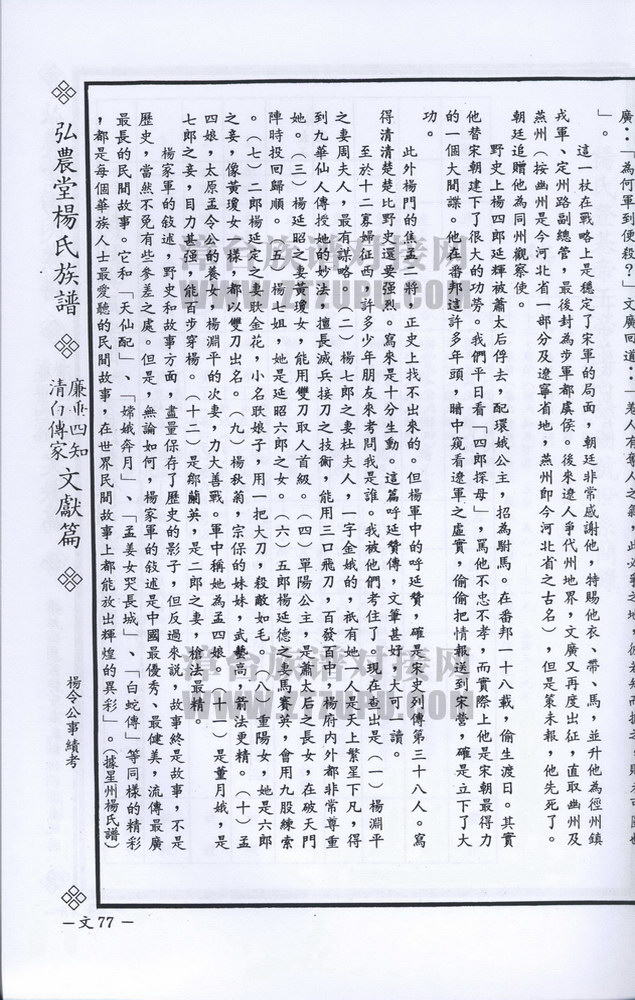 廣：「為何軍到便殺？」文廣回道：「羌人有奪人之氣
」。
這一杖在戰略上是穩定了宋軍的局面，朝廷非常感謝他，特賜他衣、帶、馬，並升他為徑州鎮
戎軍、定州路副總管，最後封為步軍都虞侯。後來遼人爭代州地界，文廣又再度出征，直取幽州及
燕州（按幽州是今河北省一部分及遼寧省地，燕州即今河北省之古名），但是策未報，他先死了。
朝廷追贈他為同州觀察使。
野史上楊四郎延輝被蕭太后俘去，配環娥公主，招為駙馬。在番邦一十八載，偷生渡日。其實
他替宋朝建下了很大的功勞。我們平日看「四郎探母」，罵他不忠不孝，而實際上他是宋朝最得力
的一個大間諜。他在番邦這許多年頭，暗中窺看遼軍之虛實，偷偷把情報送到宋營，確是立下了大
功。
此外楊門的焦孟二將，正史上找不出來的。但楊軍中的呼延贊，確是宋史列傳第三十八人。寫
得清清楚楚比野史還要强烈。寫來是十分生動。這篇呼延贊傳，文筆甚好，大可一讀。
至於十二寡婦征西，許多少年朋友來考問我是誰。我被他們考住了。現在查出是（一）楊淵平
之妻周夫人，最有謀略。（二）楊七郎之妻杜夫人，一字金娥的，祇有她一人是天上繁星下凡，得
到九華仙人傳授她的妙法，擅長滅兵接刀之技術，能用三口飛刀，百發百中，楊府內外都非常尊重
她。（三）楊延昭之妻黃瓊女，能用雙刀取人首級。（四）單陽公主，是蕭太后之長女，在破天門
陣時投回歸順。（五）楊七姐，她是延昭六郎之女。（六）五郎楊延德之妻馬賽英，會用九股練索
。（七）二郎楊延定之妻耿金花，小名耿娘子，用一把大刀，殺敵如毛。（八）重陽女，她是六郎
之妾，像黃瓊女一樣，都以雙刀出名。（九）楊秋翁，宗保的妹妹，武藝高，箭法更精。（十）孟
四娘，太原孟令公的養女，楊淵平的次妻，力大善戰。軍中稱她為孟四娘。（十一）是董月娥，是
七郎之妻，目力甚强，能百步穿楊。（十二）是鄒蘭英，是二郎之妻，槍法最精。
楊家軍的敍述，野史和故事方面，盡量保存了歷史的影子，但反過來說，故事終是故事，不是
歷史，當然不免有些參差之處。但是，無論如何，楊家軍的敍述是中國最優秀、最健美，流傳最廣
最長的民間故事。它和「天仙配」、「嫦娥奔月」、「孟姜女哭長城」、「白蛇傳」等同樣的精彩
，都是每個華族人士最愛聽的民間故事，在世界民間故事上都能放出輝煌的異彩」。（據星州楊氏譜）
弘農堂楊氏族譜
廉垂四知
清白傳家
文獻篇
楊令公事績考
—文77—
漳台族谱对接网
WWW.ZTZUPU.COM
漳台族谱对接网
WWW.ZTZUPU.COM